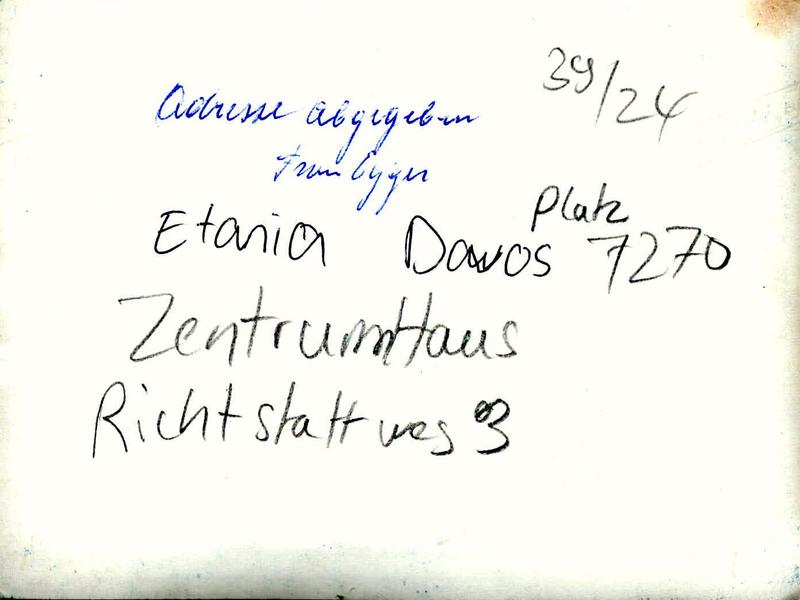 39/24
Adresse abgegeben
Etania Davos Platz 7270
ZentrumHaus
Richtstattweg 3